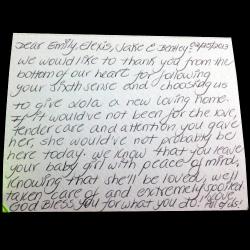 Dear Emily, Elexis, Jake & Bentley, 09/15/2013
We would like to thank you from the
bottom of our heart for following
your sixth sense and choosing us
to give Xola a new loving home.
If it would've not been for the love,
tender care and attention you gave
her, she would've not probably be
here today. We know that you leave
your baby girl with peace of mind,
knowing that she'll be loved, well
taken care of and extremely spoiled.
God Bless you for what you do! Love
All of us!